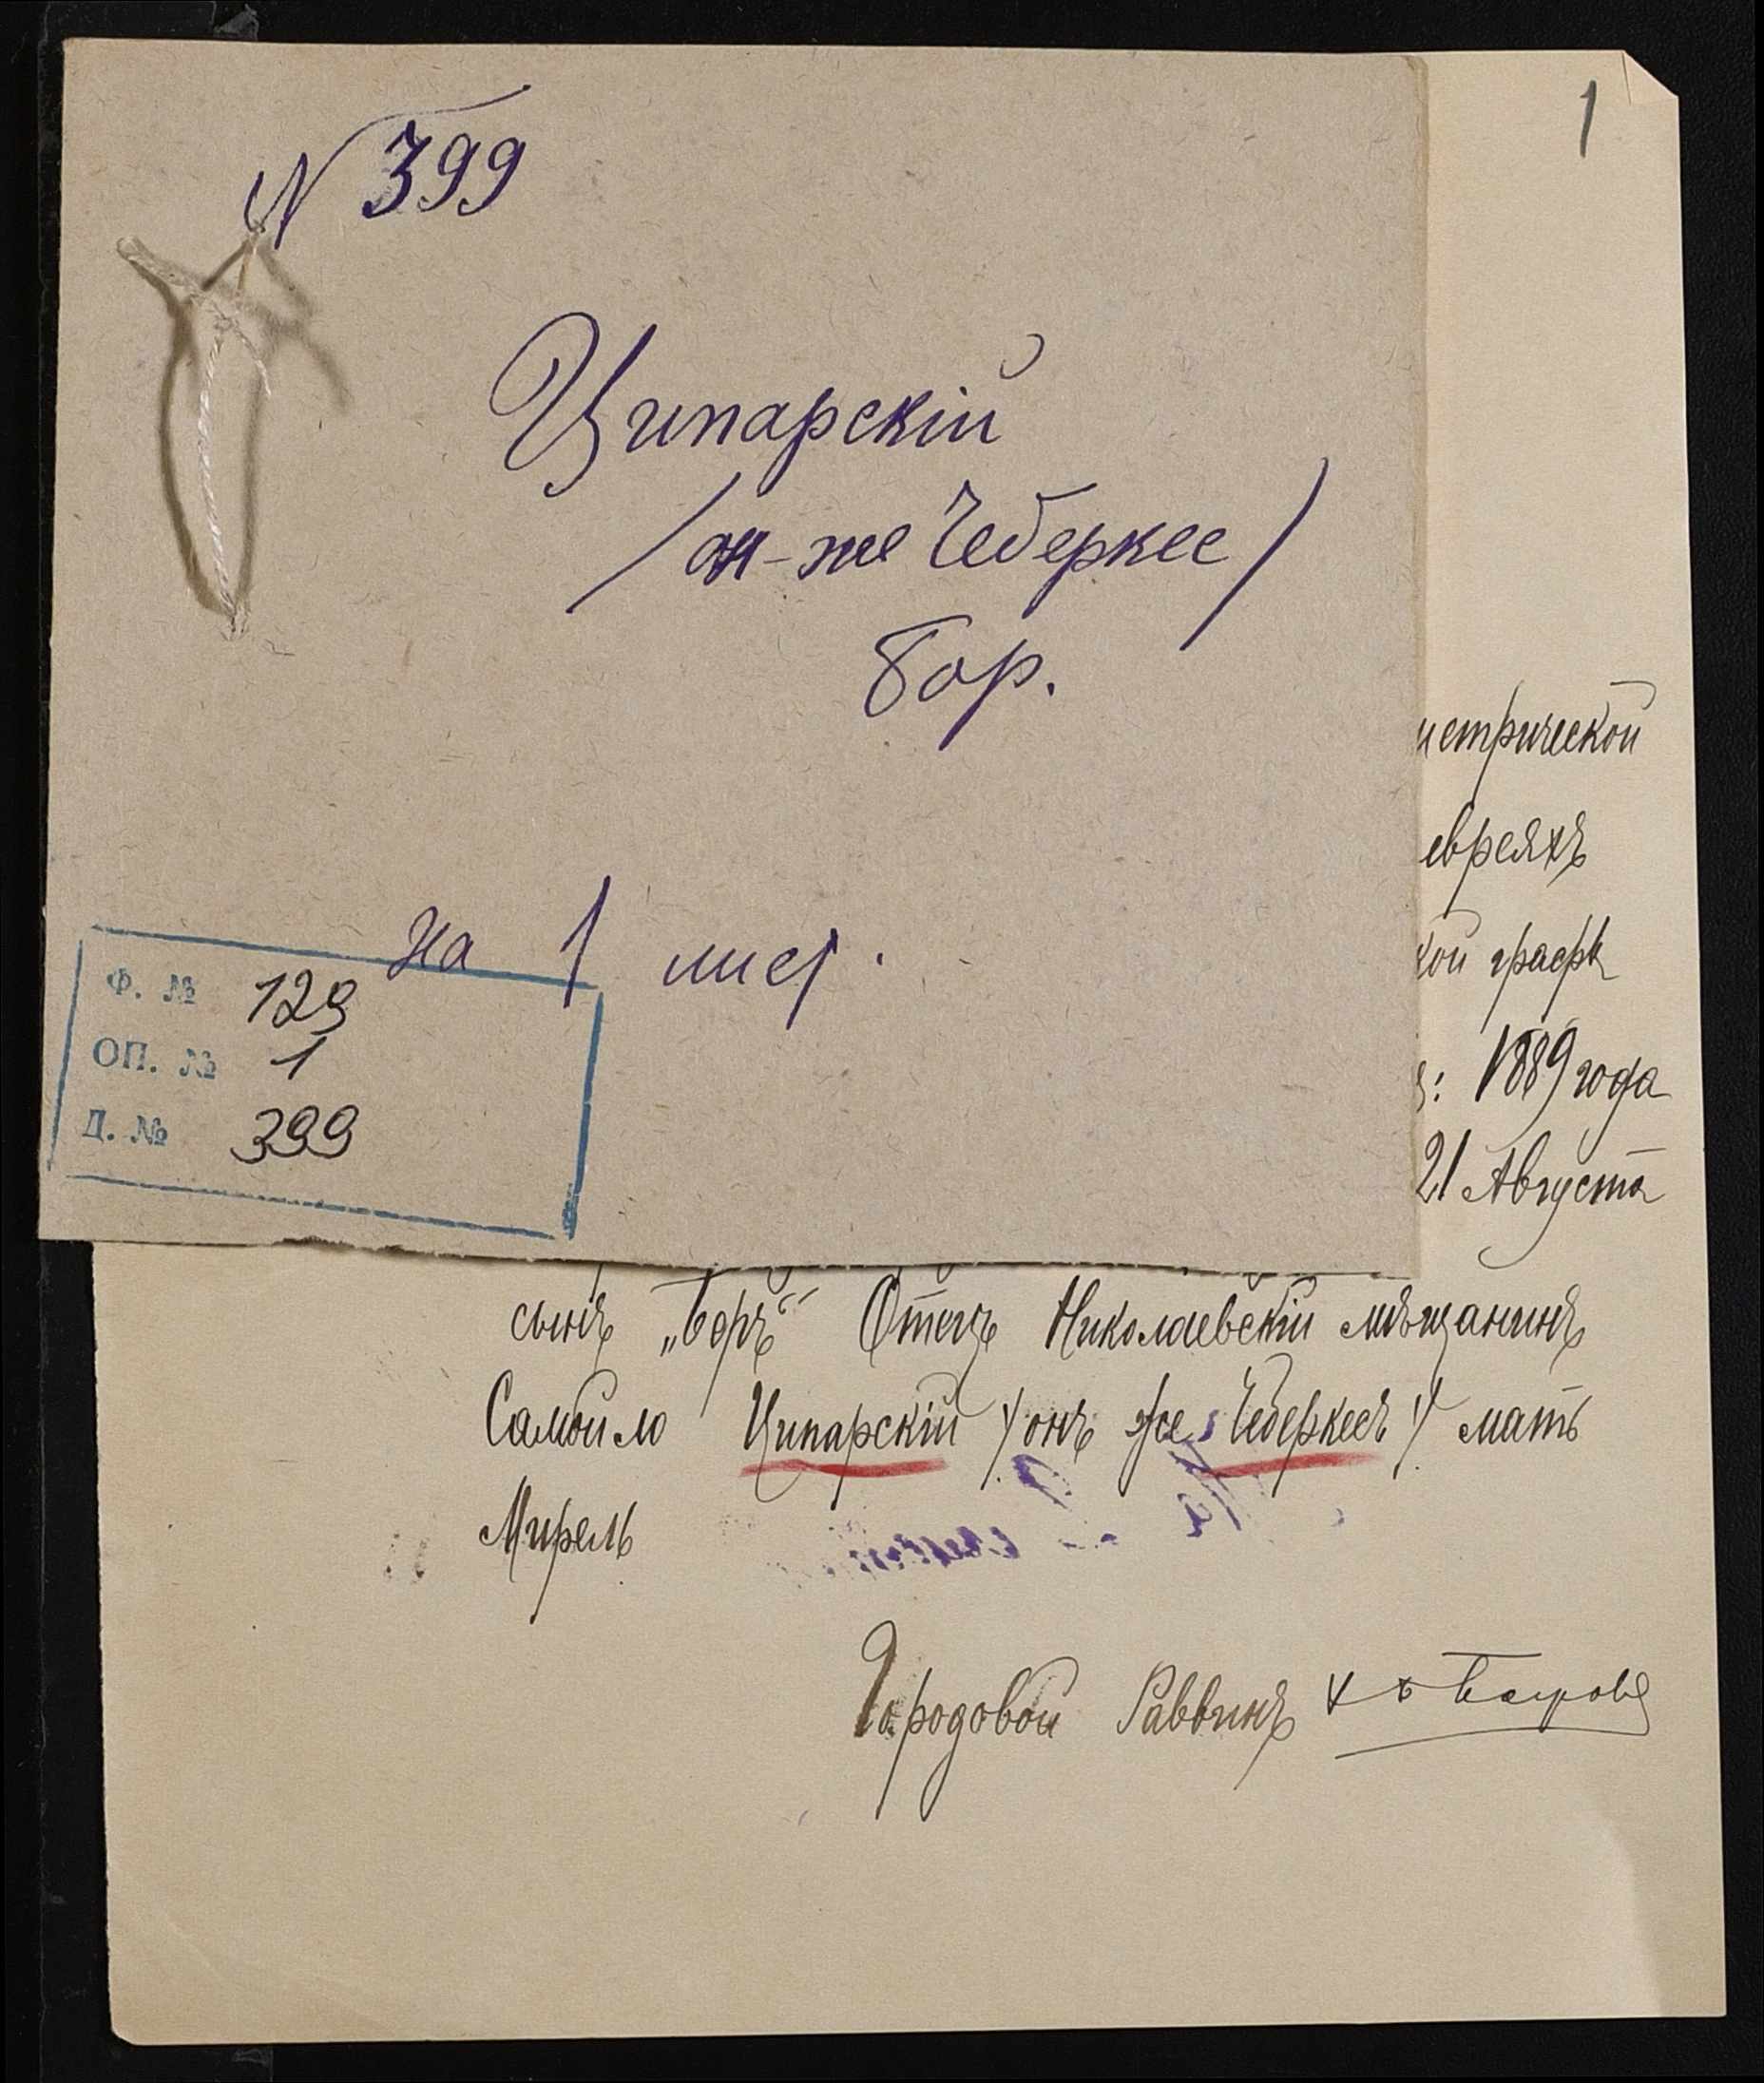 N 399
Ципарскій
/он-же Чеберкес/
Бор.
на 1 лист.
Ф. № 129
ОП. № 1
Д. № 399
1
истрической
евреяхъ
кой графѣ
: 1889 года
21 Августа
сынъ „Боръ“ Отецъ Николаевскій мѣщанинъ
Самойло Ципарскій /онъ же Чеберкесъ/ мать
Мирель
Городовой Раввинъ